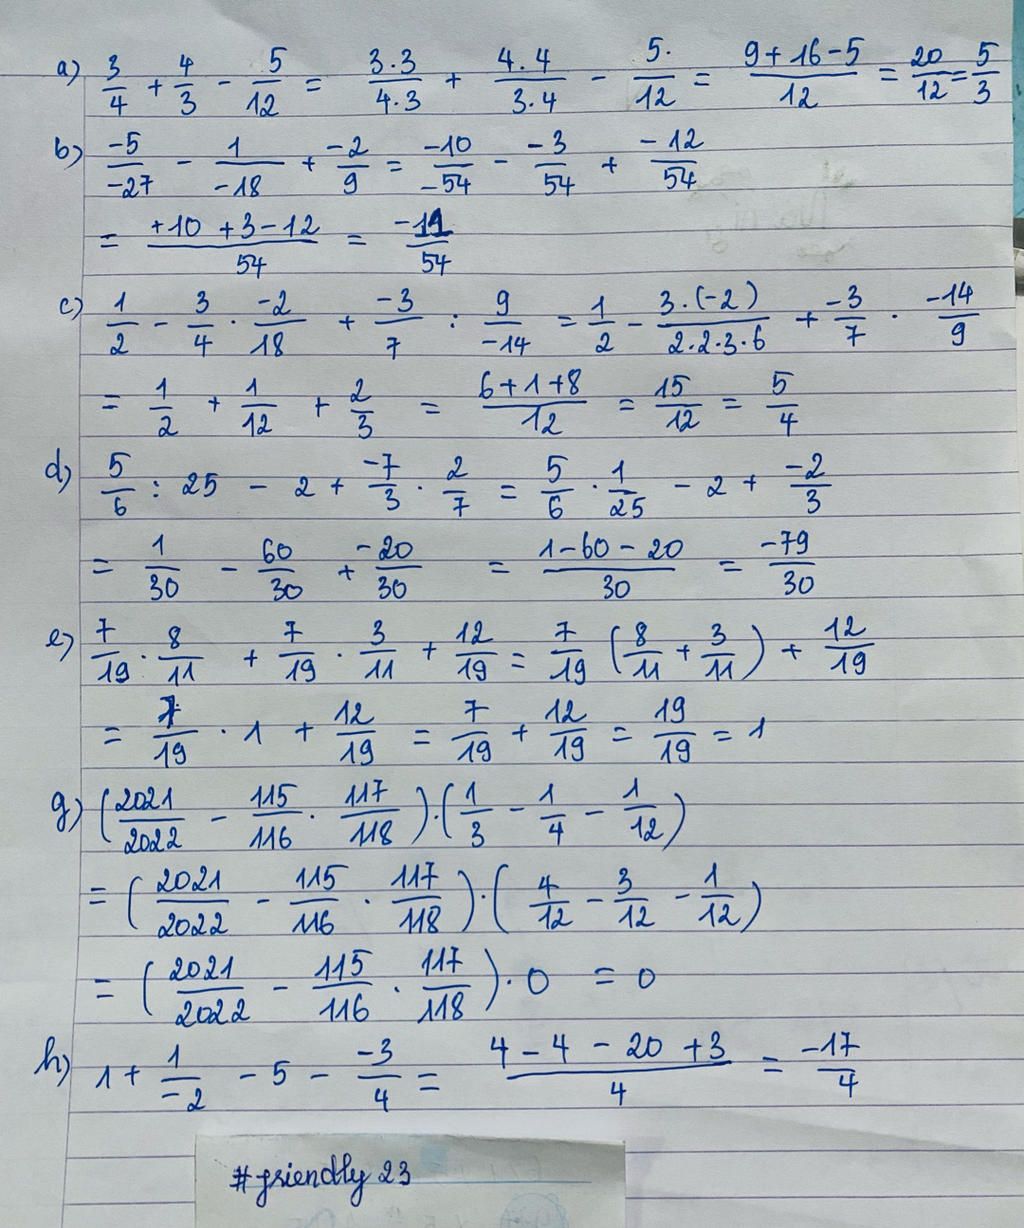 a) 3/4 + 4/3 - 5/12 = 3.3/4.3 + 4.4/3.4 - 5./12 = 9+16-5/12 = 20/12 = 5/3
b) -5/-27 - 1/-18 + -2/9 = -10/-54 - -3/54 + -12/54
= +10+3-12/54 = -11/54
c) 1/2 - 3/4 . -2/18 + -3/7 : 9/-14 = 1/2 - 3.(-2)/2.2.3.6 + -3/7 . -14/9
= 1/2 + 1/12 + 2/3 = 6+1+8/12 = 15/12 = 5/4
d) 5/6 : 25 - 2 + -7/3 . 2/7 = 5/6 . 1/25 - 2 + -2/3
= 1/30 - 60/30 + -20/30 = 1-60-20/30 = -79/30
e) 7/19 . 8/11 + 7/19 . 3/11 + 12/19 = 7/19 (8/11 + 3/11) + 12/19
= 7/19 . 1 + 12/19 = 7/19 + 12/19 = 19/19 = 1
g) (2021/2022 - 115/116 . 117/118).(1/3 - 1/4 - 1/12)
= (2021/2022 - 115/116 . 117/118).(4/12 - 3/12 - 1/12)
= (2021/2022 - 115/116 . 117/118).0 = 0
h) 1 + 1/-2 - 5 - -3/4 = 4-4-20+3/4 = -17/4
#friendly 23